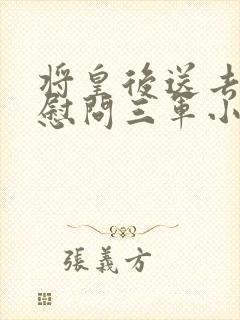 將皇後送去
慰問三軍小
張義方